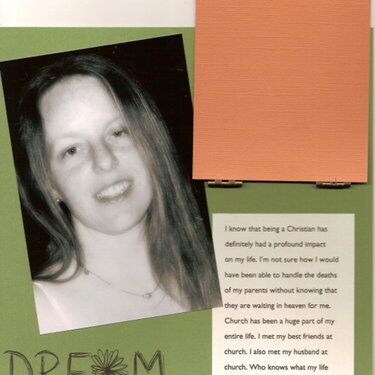 I know that being a Christian has
definitely had a profound impact
on my life. I'm not sure how I would
have been able to handle the deaths
of my parents without knowing that
they are waiting in heaven for me.
Church has been a huge part of my
entire life. I met my best friends at
church. I also met my husband at
church. Who knows what my life
DREAM